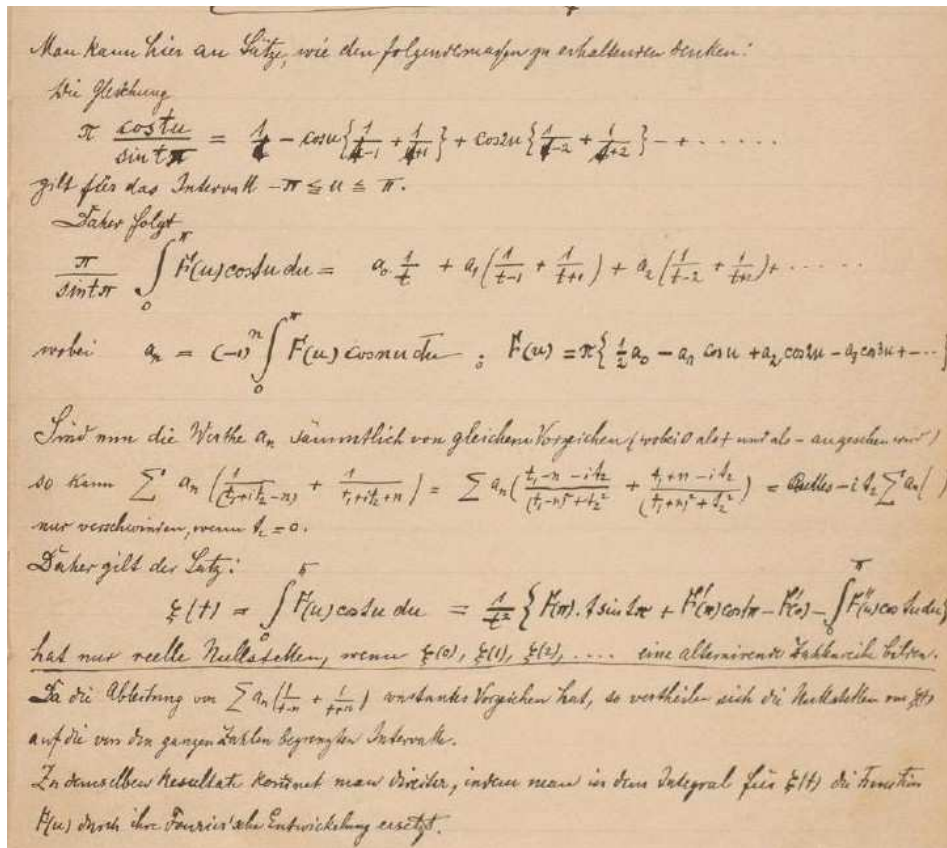 Man kann hier an Sätze, wie den folgendermaßen zu erhaltenden denken:
Die Gleichung
π cos tu / sin tπ = 1/t - cos u {1/(t-1) + 1/(t+1)} + cos 2u {1/(t-2) + 1/(t+2)} - + ......
gilt für das Intervall -π ≦ u ≦ π.
Daher folgt
π/sin tπ ∫₀^π F(u) cos tu du = a₀ · 1/t + a₁ (1/(t-1) + 1/(t+1)) + a₂ (1/(t-2) + 1/(t+2)) + ......
wobei aₙ = (-1)ⁿ ∫₀^π F(u) cos nu du ; F(u) = π{ ½ a₀ - a₁ cos u + a₂ cos 2u - a₃ cos 3u + - ... }
Sind nun die Werthe aₙ sämmtlich von gleichem Vorzeichen (wobei 0 als + und als - angesehen wird)
so kann Σ' aₙ (1/(t₁+it₂-n) + 1/(t₁+it₂+n)) = Σ aₙ ((t₁-n-it₂)/((t₁-n)²+t₂²) + (t₁+n-it₂)/((t₁+n)²+t₂²)) = Reelles - i t₂ Σ' aₙ ( )
nur verschwinden, wenn t₂ = 0.
Daher gilt der Satz:
ξ(t) = ∫₀^π F(u) cos tu du = 1/t² { F(π) · t sin tπ + F'(π) cos tπ - F'(0) - ∫₀^π F''(u) cos tu du }
hat nur reelle Nullstellen, wenn ξ(0), ξ(1), ξ(2), .... eine alternirende Zahlenreihe bilden.
Da die Ableitung von Σ aₙ (1/(t-n) + 1/(t+n)) constantes Vorzeichen hat, so vertheilen sich die Nullstellen von ξ(t)
auf die von den ganzen Zahlen begrenzten Intervalle.
Zu demselben Resultate kommt man direkter, indem man in dem Integral für ξ(t) die Function
F(u) durch ihre Fourier'sche Entwickelung ersetzt.